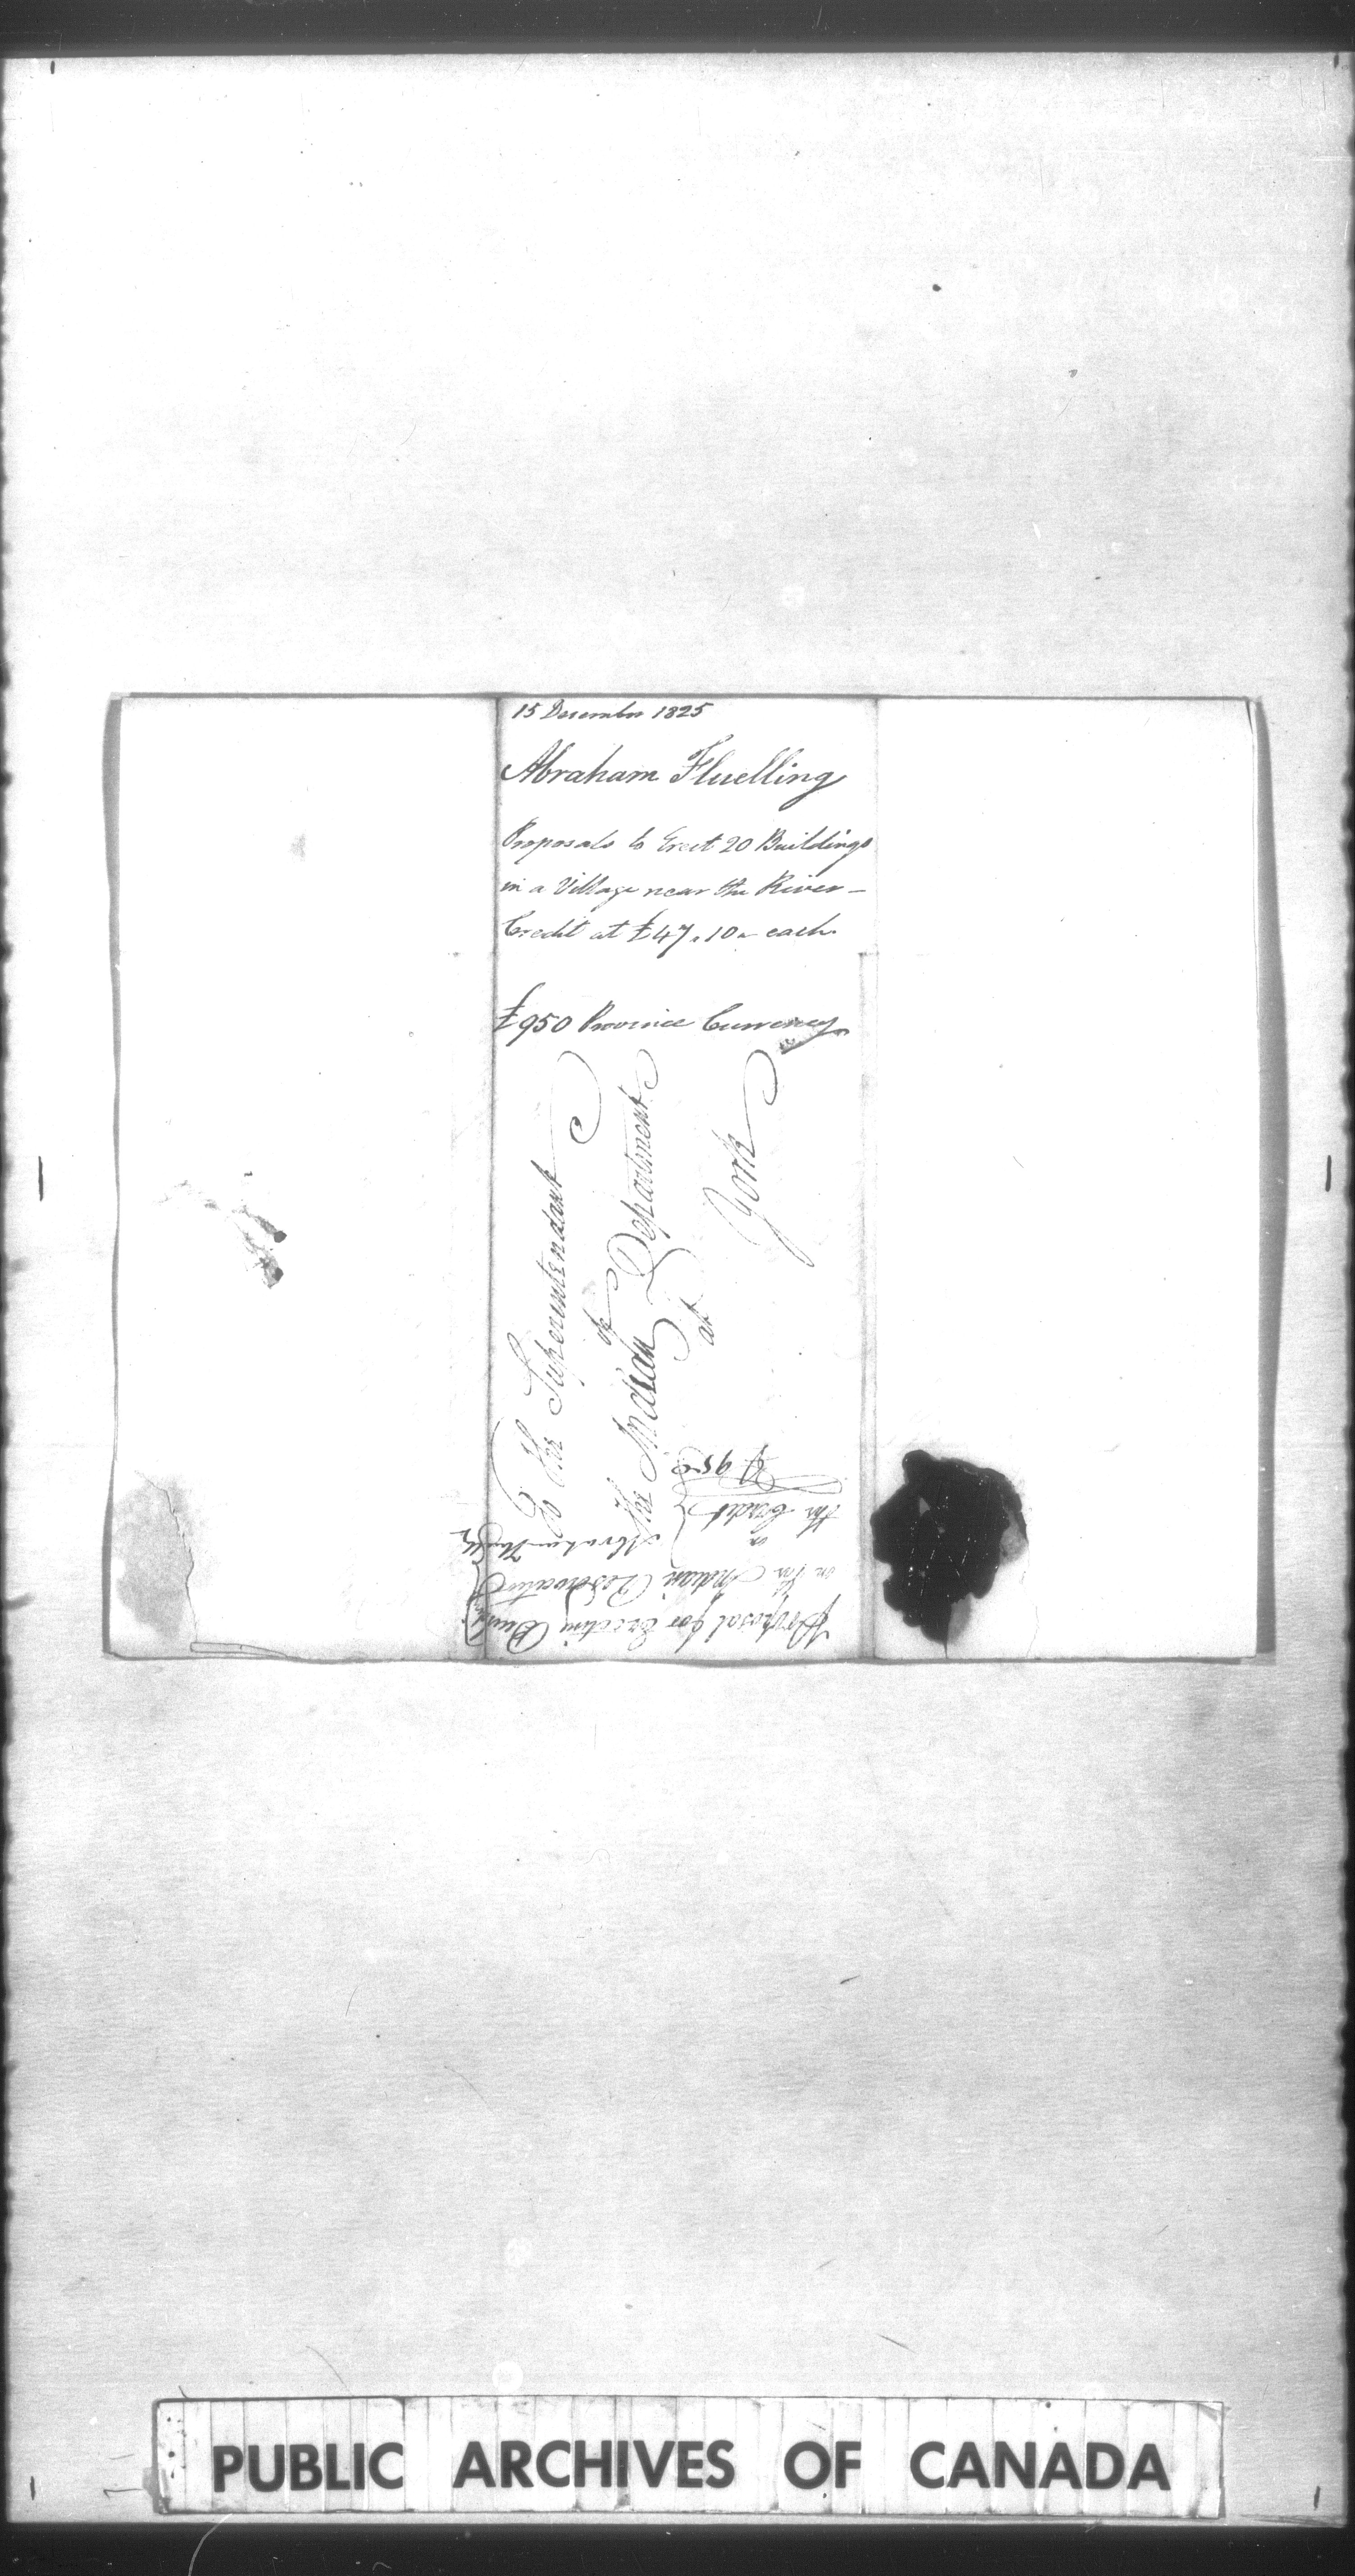 15 December 1825
Abraham Fluelling
Proposals to Erect 20 Buildings
in a Village near the River –
Credit at £47.10 – each.
£950 Province Currency
To the Superintendant
of
the Indian Department
at
York
Proposal for Erecting
on the Indian Reservation
the Credit
Abraham
£950
PUBLIC ARCHIVES OF CANADA